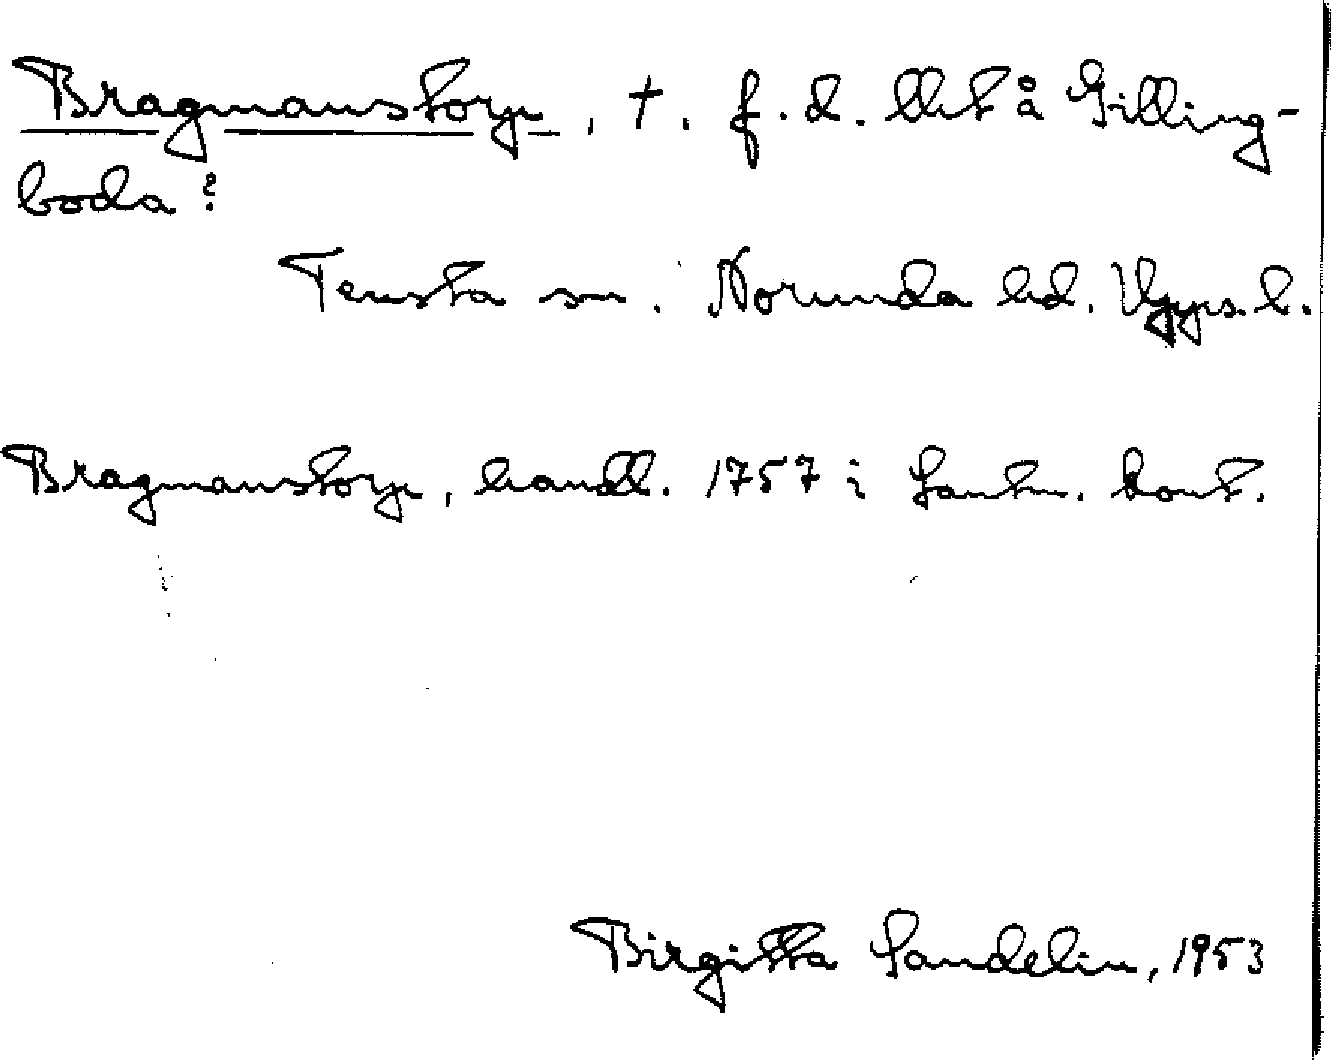 Bragmanstorp, †. f.d. lht å Gilling-
boda?
Tensta sn. Norunda hd. Upps. l.
Bragmanstorp, handl. 1757 i Lantm. kont.
Birgitta Sandelin, 1953